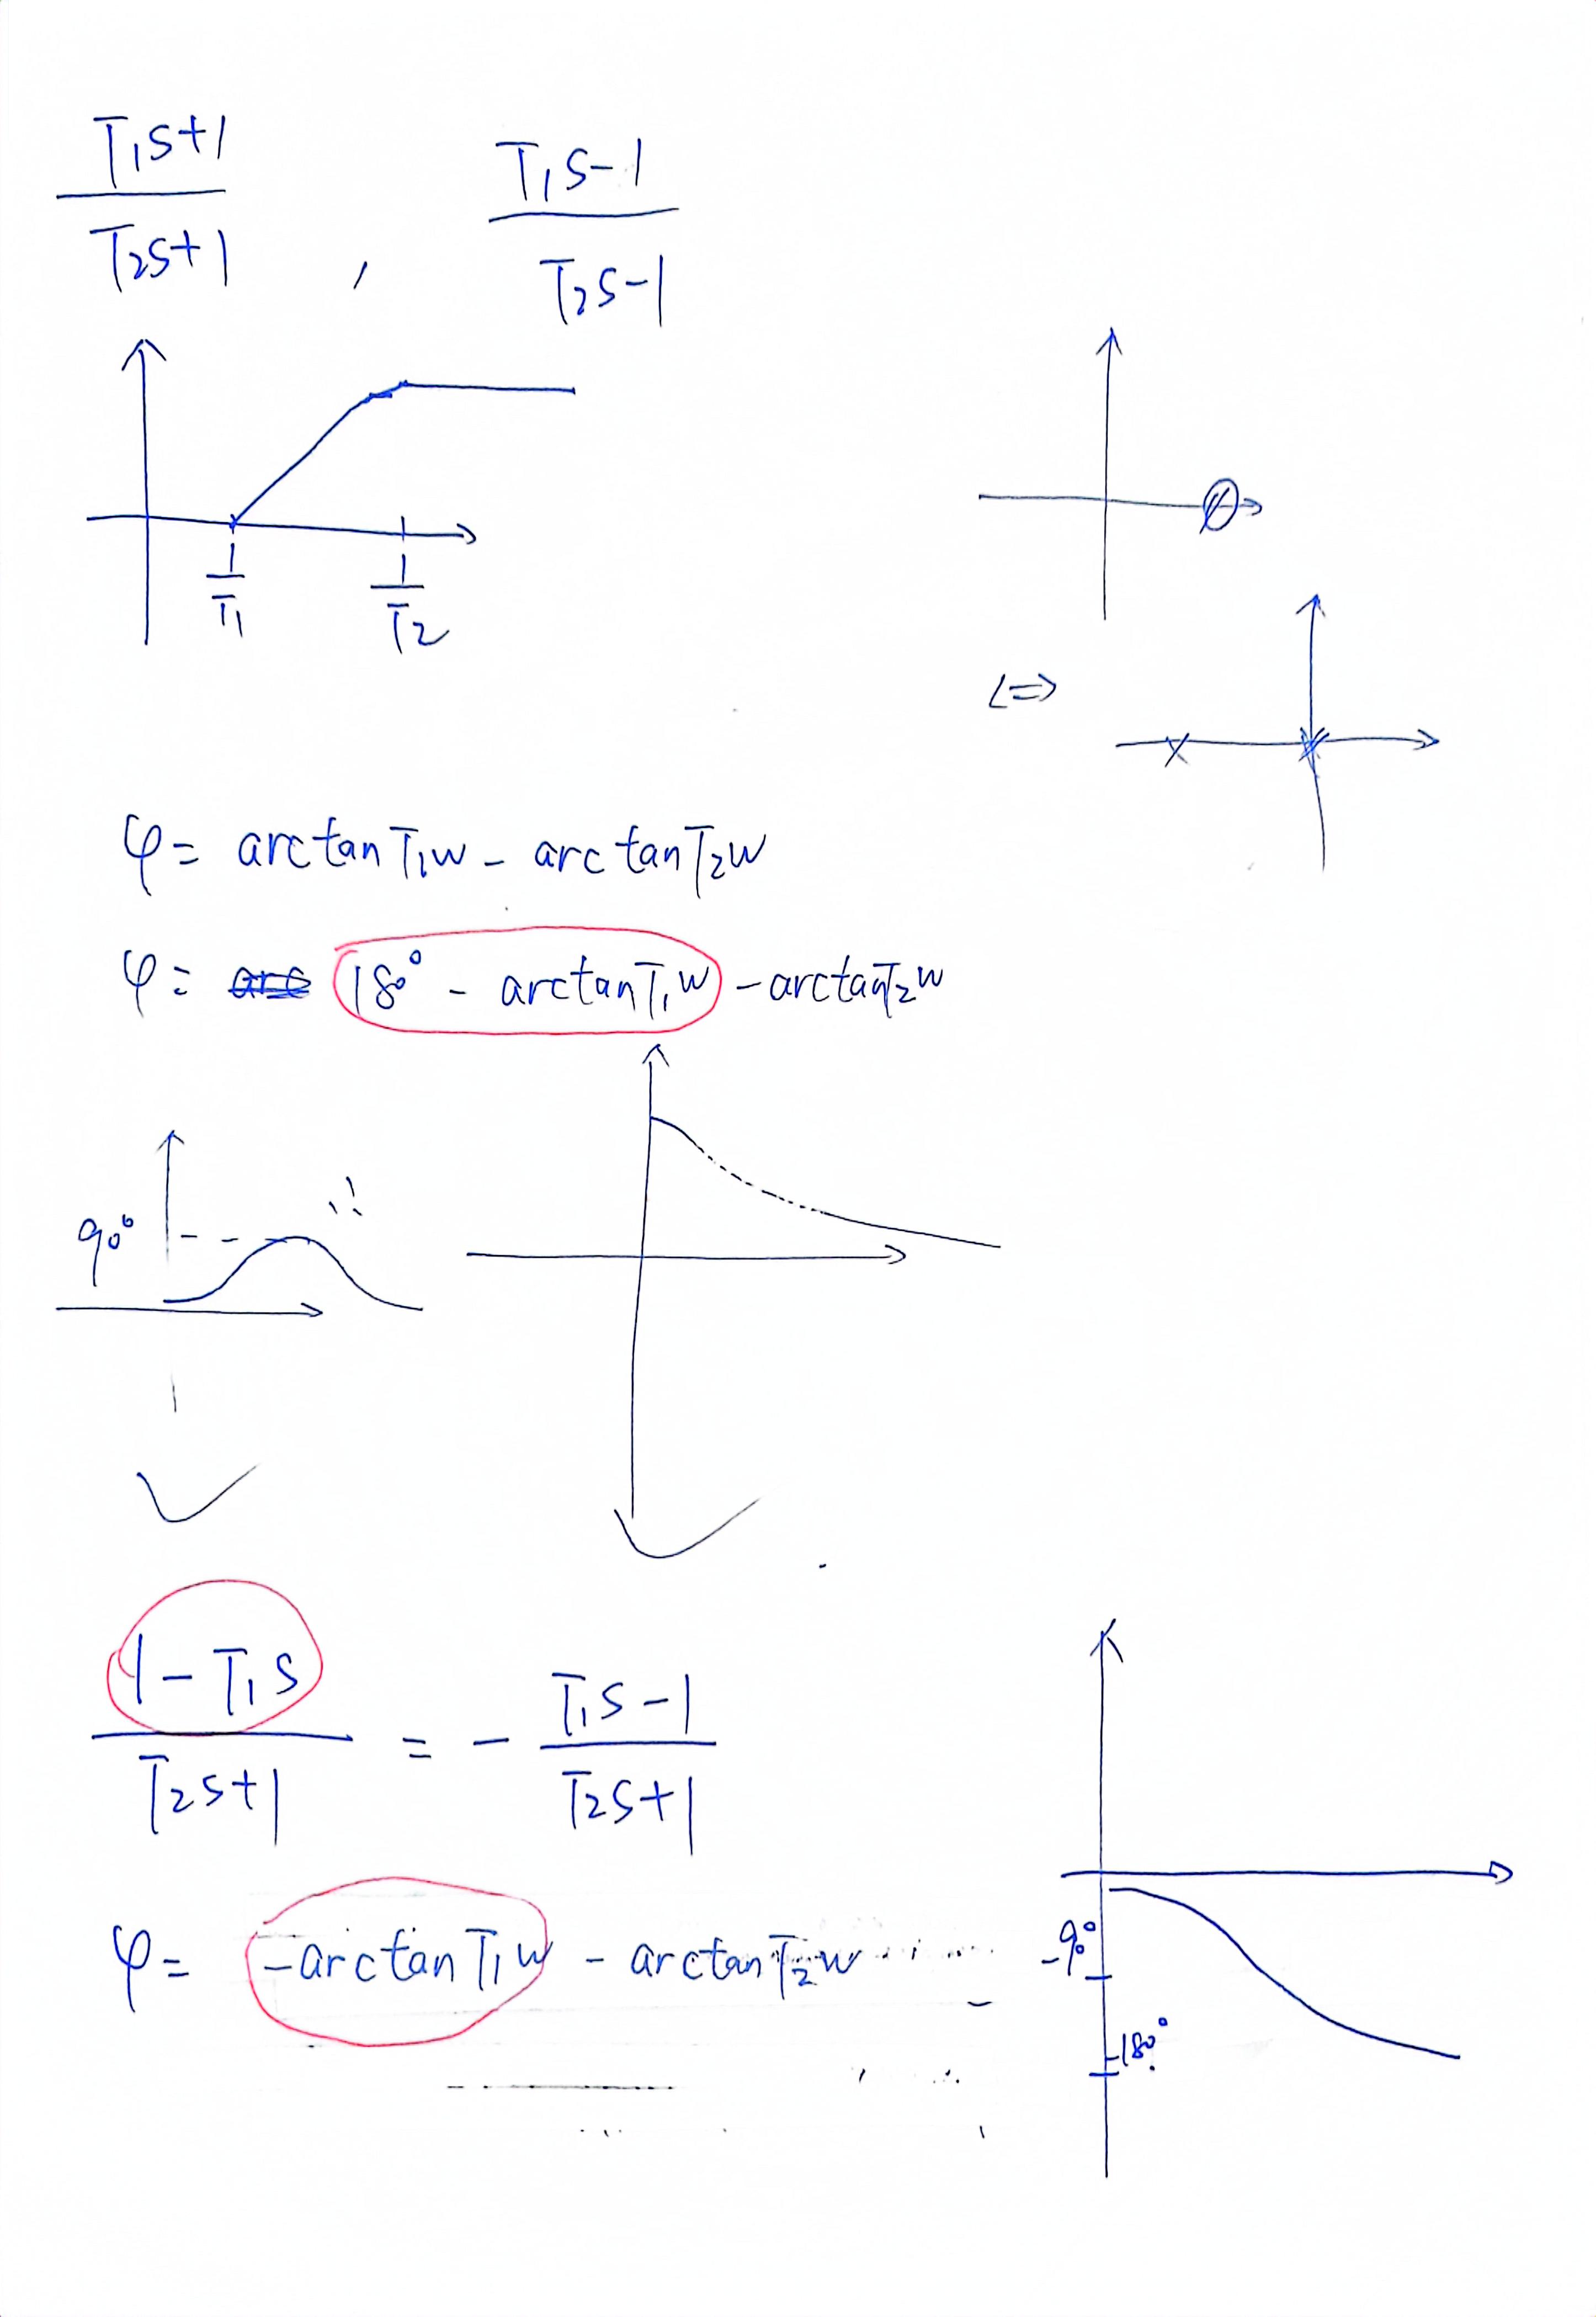 T₁s+1 / T₂s+1 , T₁s-1 / T₂s-1
1/T₁ 1/T₂
<=>
φ= arctanT₁w - arctanT₂w
φ= 180° - arctanT₁w - arctanT₂w
90°
1-T₁s / T₂s+1 = - T₁s-1 / T₂s+1
φ= -arctanT₁w - arctanT₂w
-90°
-180°